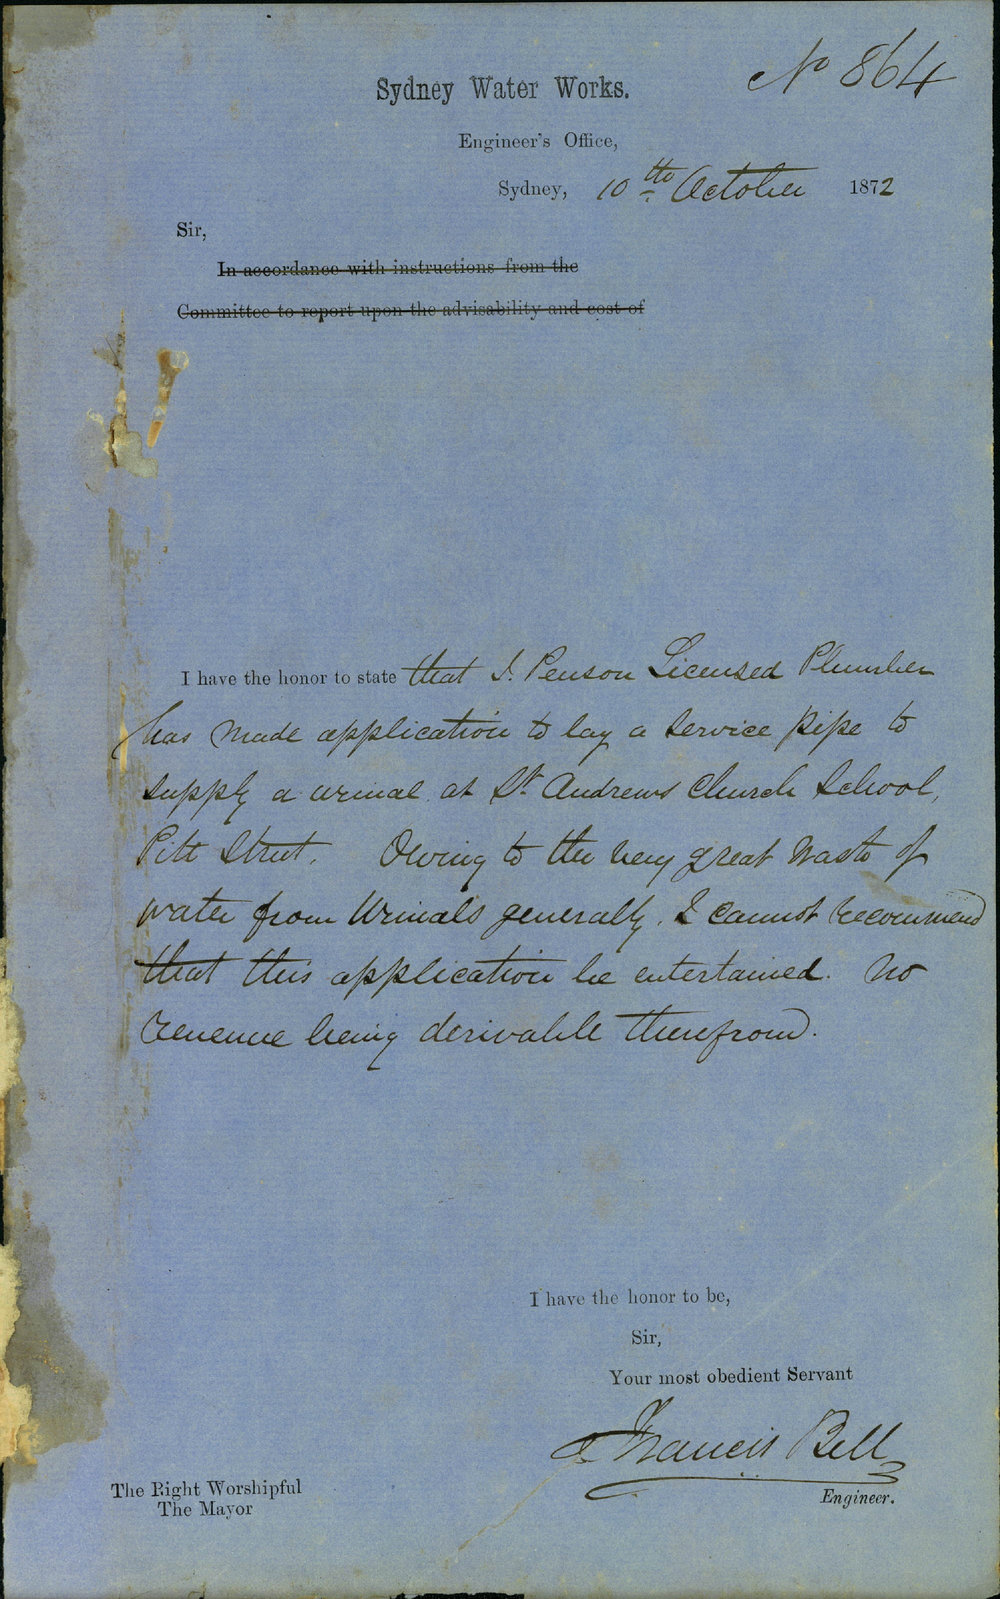 No 864
Sydney Water Works.
Engineer's Office,
Sydney, 10th October 1872
Sir,
In accordance with instructions from the
Committee to report upon the advisability and cost of
I have the honor to state that J. Penson Licensed Plumber
has made application to lay a service pipe to
supply a urinal at St. Andrews Church School,
Pitt Street. Owing to the very great waste of
water from Urinals generally. I cannot recommend
that this application be entertained. No
revenue being derivable therefrom.
I have the honor to be,
Sir,
Your most obedient Servant
Francis Bell
Engineer.
The Right Worshipful
The Mayor